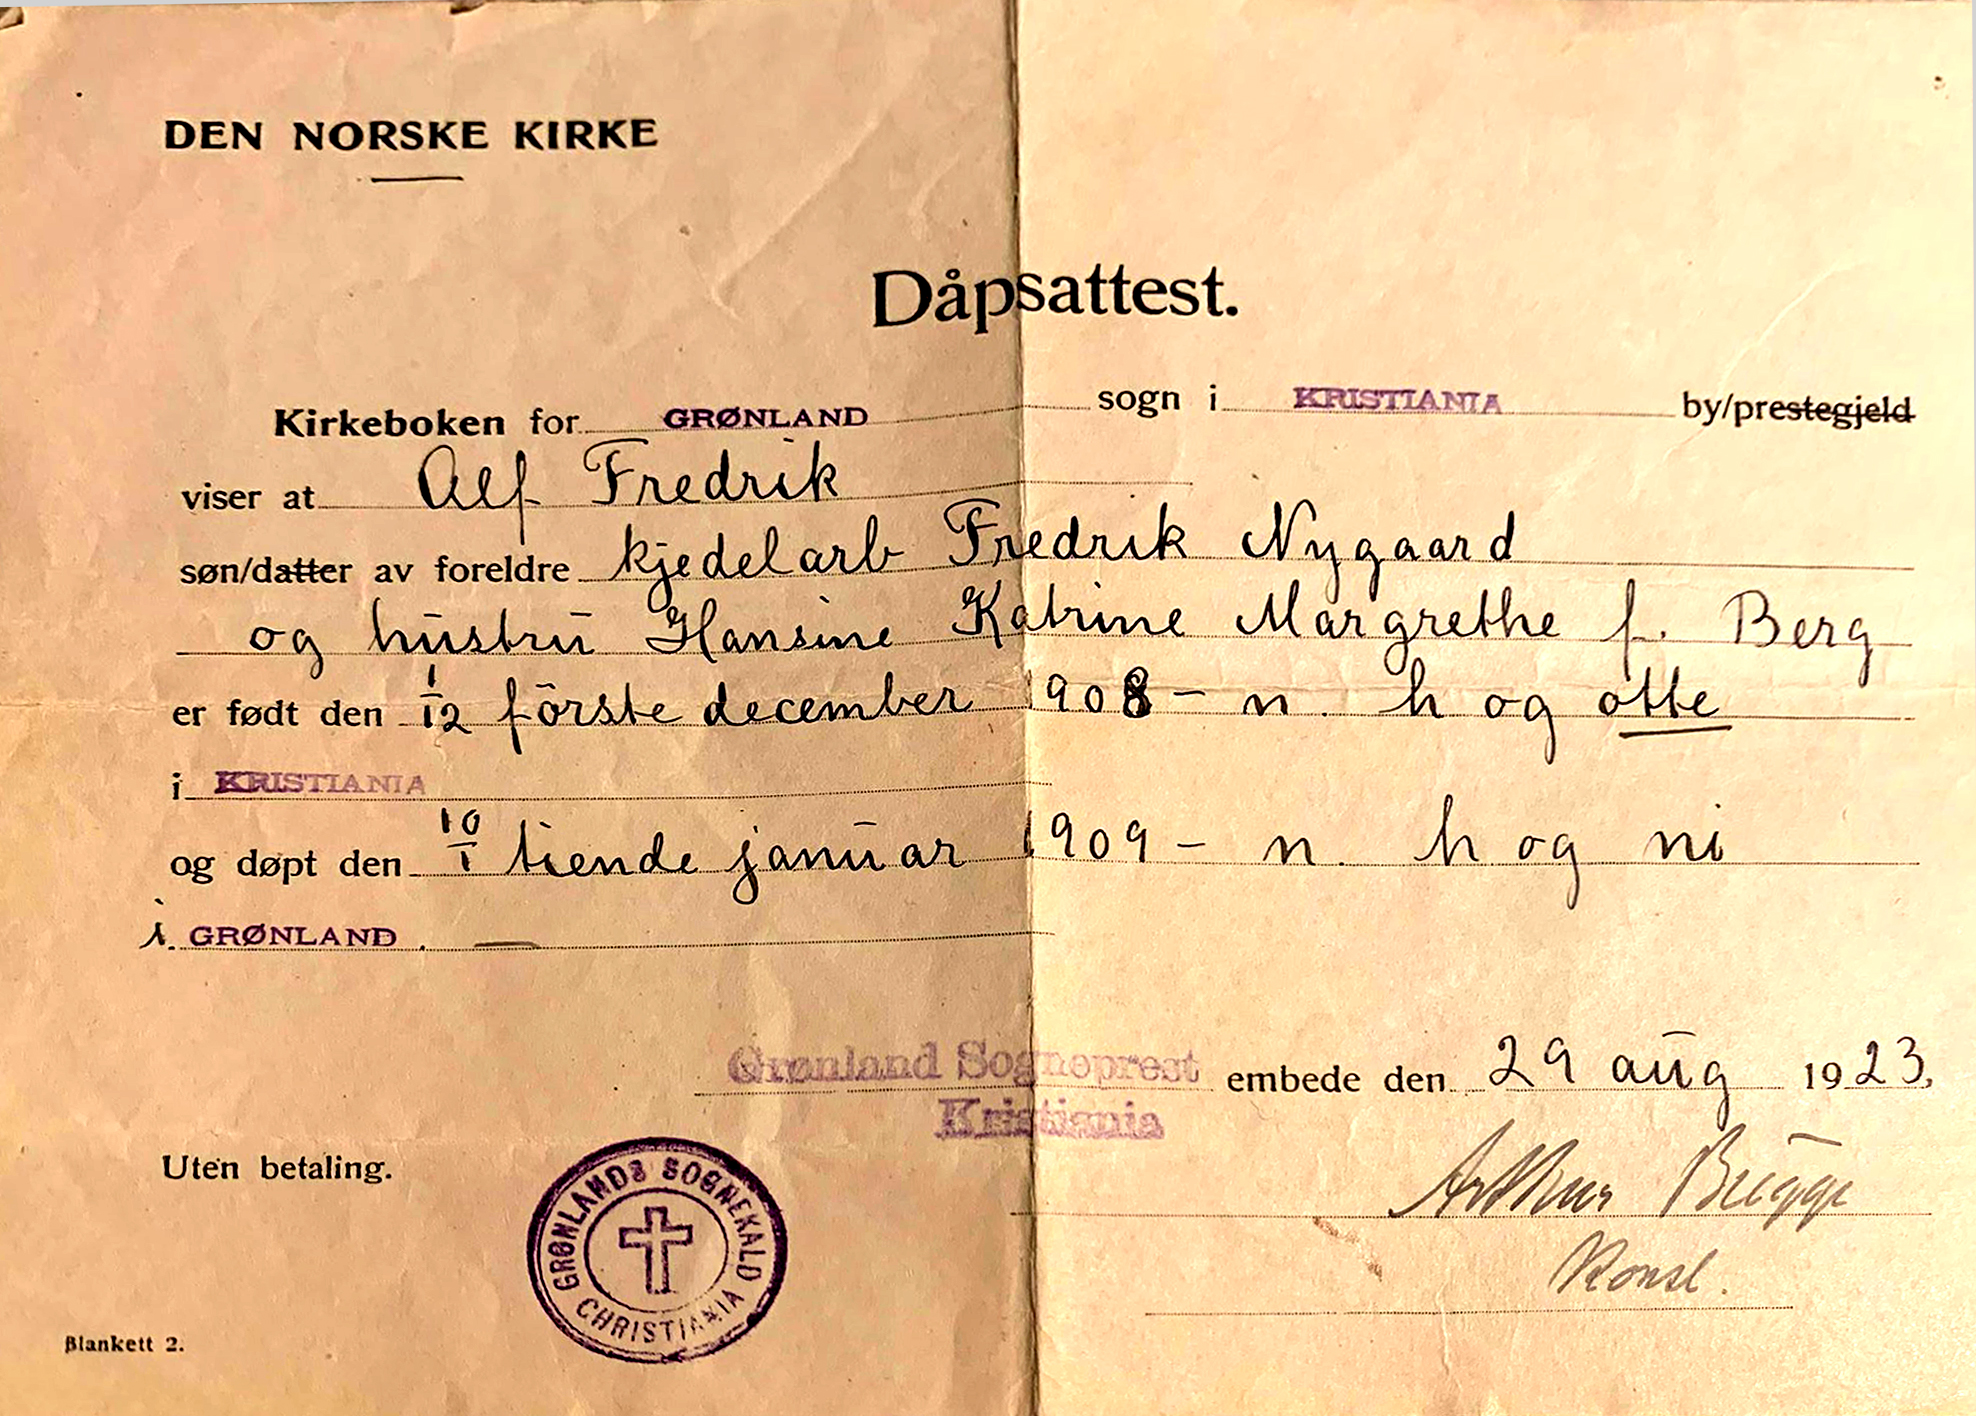 DEN NORSKE KIRKE
Dåpsattest.
Kirkeboken for GRØNLAND sogn i KRISTIANIA by/prestegjeld
viser at Alf Fredrik
søn/datter av foreldre kjedelarb Fredrik Nygaard
og hustru Hansine Katrine Margrethe f. Berg
er født den 1/12 förste december 1908 - n. h og otte
i KRISTIANIA
og døpt den 10/1 tiende januar 1909 - n. h og ni
i GRØNLAND .
Grønland Sogneprest embede den 29 aug 1923,
Kristiania
Arthur Bugge
Uten betaling.
GRØNLANDS SOGNEKALD
CHRISTIANIA
Konst.
Blankett 2.